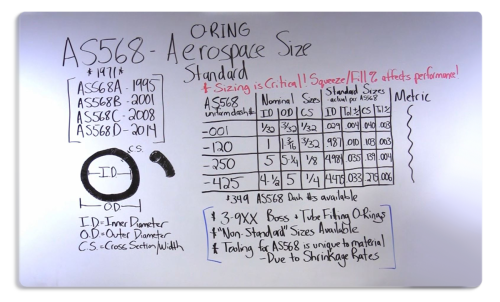 O-RING
AS568 - Aerospace Size
Standard
* 1971 *
AS568A - 1995
AS568B - 2001
AS568C - 2008
AS568D - 2014
* Sizing is Critical! Squeeze/Fill % affects performance!
AS568 Nominal Sizes Standard Sizes Metric
uniform dash # ID OD CS actual per AS568
ID Tol ± CS Tol ±
-001 1/32 3/32 1/32 .029 .004 .040 .003
-120 1 3/32 .987 .010 .103 .003
-250 5 5 1/4 1/8 4.984 .035 .139 .004
-425 4 1/2 5 1/4 4.475 .033 .275 .006
* 349 AS568 Dash #s available
C.S.
I.D.
O.D.
I.D = Inner Diameter
O.D = Outer Diameter
C.S = Cross Section/Width
* 3-9XX Boss + Tube Fitting O-Rings
* "Non-Standard" Sizes Available
* Tooling for AS568 is unique to material
- Due to Shrinkage Rates